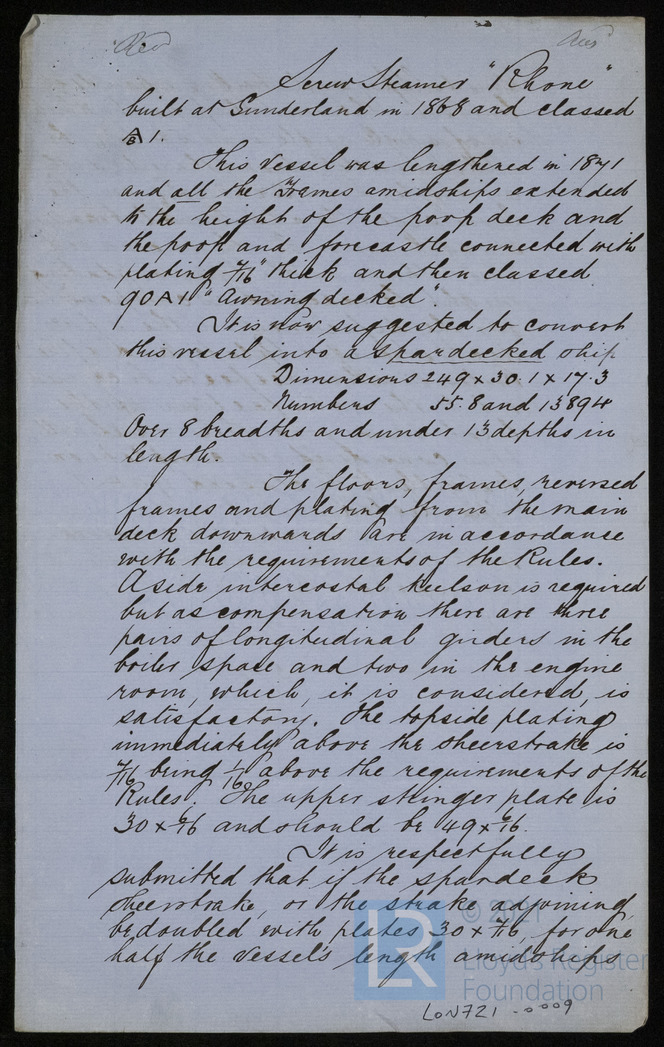 Rec
Screw Steamer "Rhone"
built at Sunderland in 1868 and classed
A/B 1.
This vessel was lengthened in 1871
and all the frames amidships extended
to the height of the poop deck and
the poop and forecastle connected with
plating 7/16" thick and then classed
90 A 1 "Awning decked".
It is now suggested to convert
this vessel into a spardecked ship
Dimensions 249 x 30.1 x 17.3
Numbers 55.8 and 13894
Over 8 breadths and under 13 depths in
length.
The floors, frames, reversed
frames and plating from the main
deck downwards are in accordance
with the requirements of the Rules.
A side intercostal keelson is required
but as compensation there are three
pairs of longitudinal girders in the
boiler space and two in the engine
room, which, it is considered, is
satisfactory. The topside plating
immediately above the sheerstrake is
7/16 being 1/16 above the requirements of the
Rules. The upper stringer plate is
30 x 6/16 and should be 49 x 6/16.
It is respectfully
submitted that if the spardeck
sheerstrake, or the strake adjoining,
be doubled with plates 30 x 7/16 for one
half the vessel's length amidships
LR
Lloyd's Register
Foundation
LON721-0009